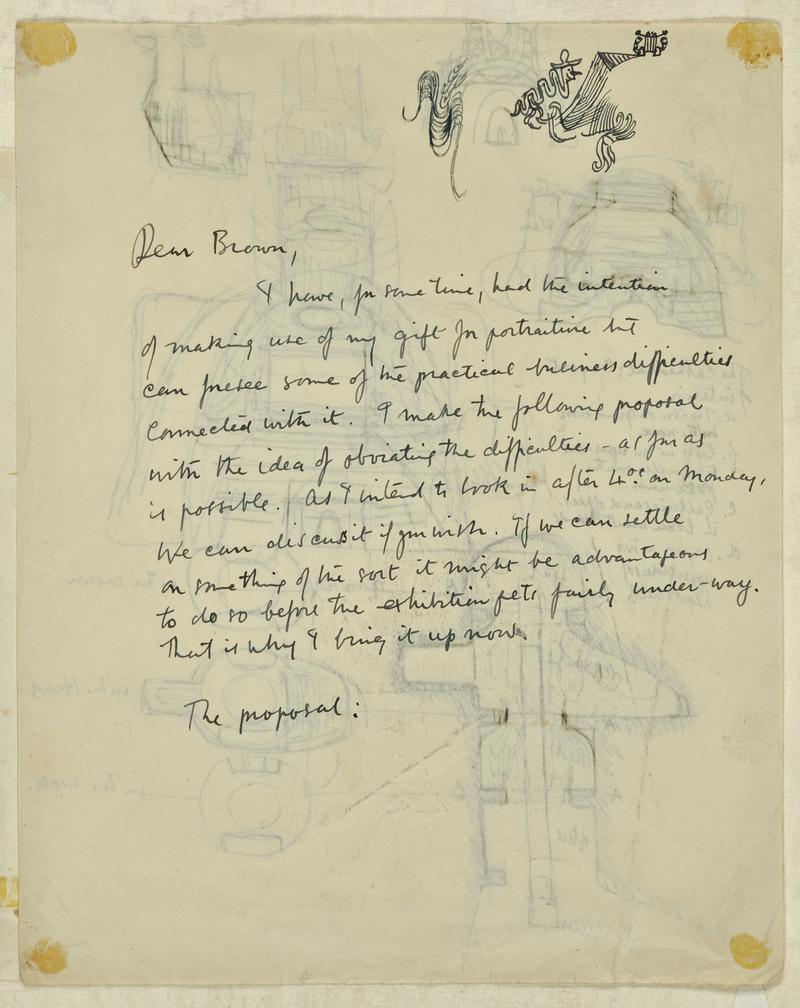 Dear Brown,
I have, for some time, had the intention
of making use of my gift for portraiture but
can foresee some of the practical business difficulties
connected with it. I make the following proposal
with the idea of obviating the difficulties - as far as
is possible. As I intend to look in after 4.0 on Monday,
We can discuss it if you wish. If we can settle
on something of the sort it might be advantageous
to do so before the exhibition gets fairly under-way.
That is why I bring it up now.
The proposal: